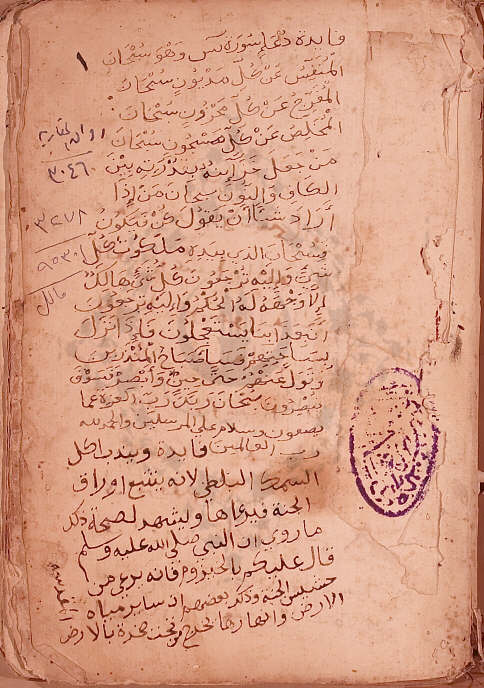 فايدة دعا سورة يس وهو سبحان
المنفس عن كل مديون سبحان
المفرج عن كل محزون سبحان
المخلص عن كل مسجون سبحان
من جعل خزاينه بقدرته بين
الكاف والنون سبحان من اذا
اراد شيئا ان يقول كن فيكون
فسبحان الذي بيده ملكوت كل
شيء واليه ترجعون كل شيء هالك
الا وجهه له الحكم واليه ترجعون
افبعذابنا يستعجلون فاذا نزل
بساحتهم فساء صباح المنذرين
وتول عنهم حتى حين وابصر فسوف
يبصرون سبحان ربك رب العزة عما
يصفون وسلام على المرسلين والحمد لله
رب العالمين فايدة ويندب اكل
السمك البلطي لانه يتتبع اوراق
الجنة فيرعاها ويشهد لصحة ذلك
ما روي ان النبي صلى الله عليه وسلم
قال عليكم فانه يرعى من
حشيش الجنة وذكر بعضهم ان ساير مياه
الارض وانهارها تخرج من تحت صخرة بالارض
المقدسة
١
رواق المغاربة
٣٠٤٦٠
٣٢٧٨
٩٥٣٠
مالك